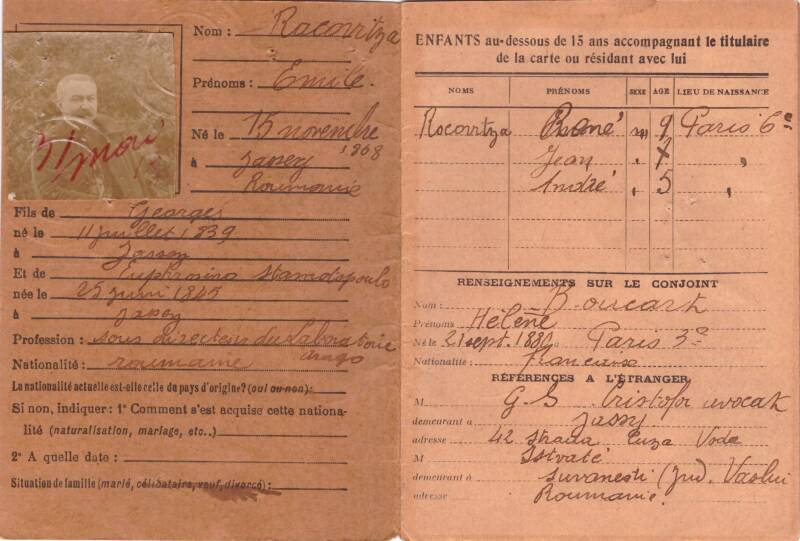 Nom : Racovitza
Prénoms : Emile.
Né le 15 novembre
1868
à Jassy
Roumanie
Fils de Georges
né le 11 juillet 1839
à Jassy
Et de Euphrosine Stamatopoulo
née le 25 juin 1845
à Jassy
Profession : sous directeur du Laboratoire
Arago
Nationalité : roumaine
La nationalité actuelle est-elle celle du pays d'origine? (oui ou non) :
Si non, indiquer : 1° Comment s'est acquise cette nationa-
lité (naturalisation, mariage, etc..)
2° A quelle date :
Situation de famille (marié, célibataire, veuf, divorcé) :
ENFANTS au-dessous de 15 ans accompagnant le titulaire
de la carte ou résidant avec lui
NOMS PRÉNOMS SEXE AGE LIEU DE NAISSANCE
Racovitza René m 9 Paris 6e
Jean " 7 "
André " 5 "
RENSEIGNEMENTS SUR LE CONJOINT
Nom : Boucart
Prénoms Hélène
Né le 21 sept. Paris 3e
Nationalité : française
RÉFÉRENCES A L'ÉTRANGER
M G. S. Cristofor avocat
demeurant à Jassy
adresse 42 Strada Cuza Voda
M Istraté
demeurant à (jud. Vaslui
adresse Roumanie.